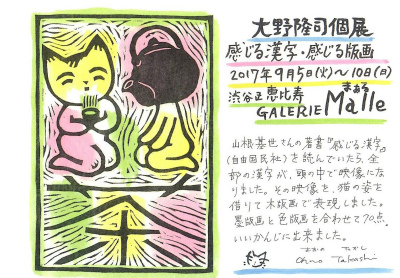 大野隆司個展
感じる漢字・感じる版画
2017年9月5日(火)〜10日(日)
渋谷区恵比寿 まぁる
GALERIE Malle
山根基世さんの著書『感じる漢字』
(自由国民社)を読んでいたら、全
部の漢字が、頭の中で映像にな
りました。その映像を、猫の姿を
借りて木版画で表現しました。
墨版画と色版画を合わせて70点、
いいかんじに出来ました。
おおの たかし
Ohno Takashi
茶